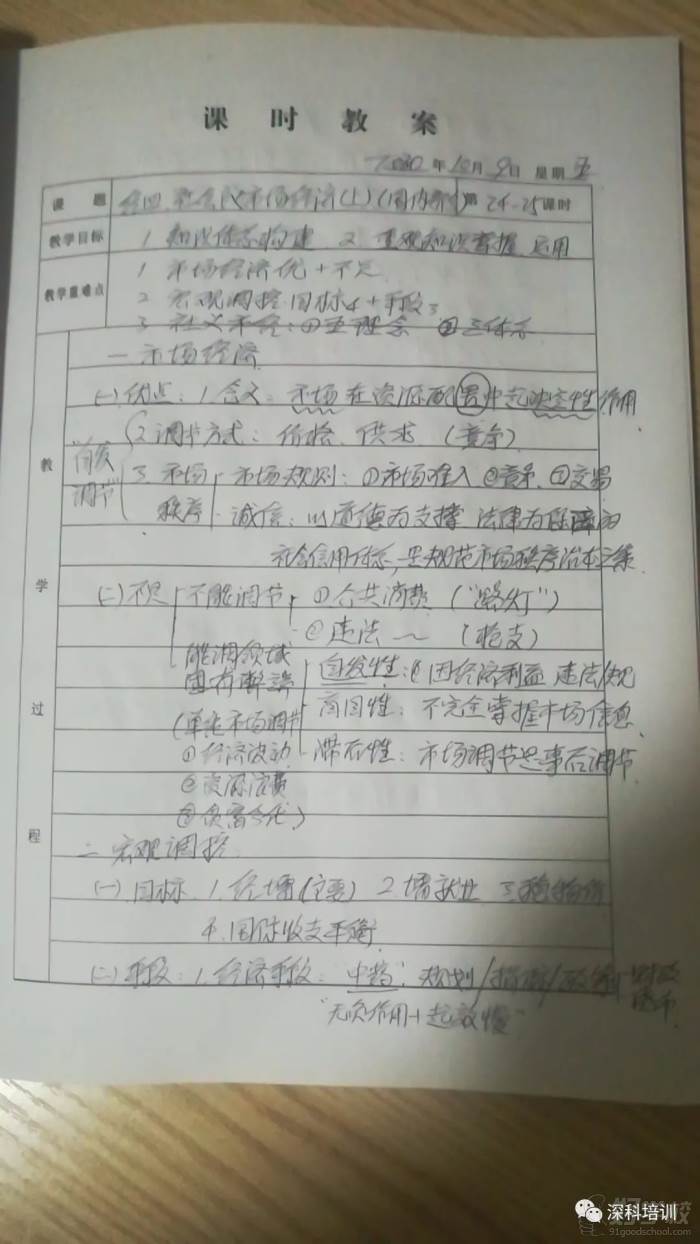 课时教案
2020年10月9日 星期五
课题 经四 社会义市场经济(上)(国内部分) 第24-25课时
教学目标 1 知识体系构建 2 重难知识掌握、运用
教学重难点 1 市场经济优+不足
2 宏观调控:目标4+手段3
3 社义市经:
教学过程
一 市场经济
(一)优点:1.含义:市场在资源配置中起决定性作用
2 调节方式:价格、供求(竞争)
3 市场秩序 市场规则:①市场准入②竞争、③交易
诚信:以道德为支撑、法律为保障的
社会信用体系,是规范市场秩序治本之策
(二)不足 不能调节 ①公共消费(“路灯”)
②违法～(枪支)
能调领域固有弊端
自发性:因经济利益违法
盲目性:不完全掌握市场信息
滞后性:市场调节是事后调节
(单纯市场调节
①经济波动
②资源浪费
③贫富分化)
二 宏观调控
(一)目标 1.经增(主要) 2 增就业 3 稳物价
4.国际收支平衡
(二)手段:1.经济手段:“中药”:规划/
“无负作用+起效慢”
深科培训
好学校
91goodschool.com